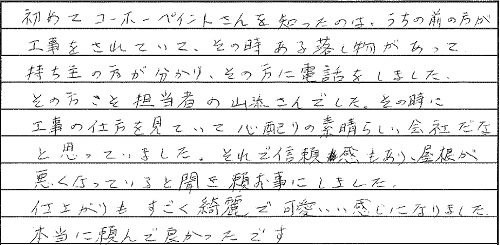 初めてコーホーペイントさんを知ったのは、うちの前の方が
工事をされていて、その時ある落し物があって
持ち主の方が分かり、その方に電話をしました。
その方こそ担当者の山添さんでした。その時に
工事の仕方を見ていて心配りの素晴らしい会社だな
と思っていました。それで信頼感もあり、屋根が
悪くなっていると聞き頼む事にしました。
仕上がりもすごく綺麗で可愛いい感じになりました
本当に頼んで良かったです